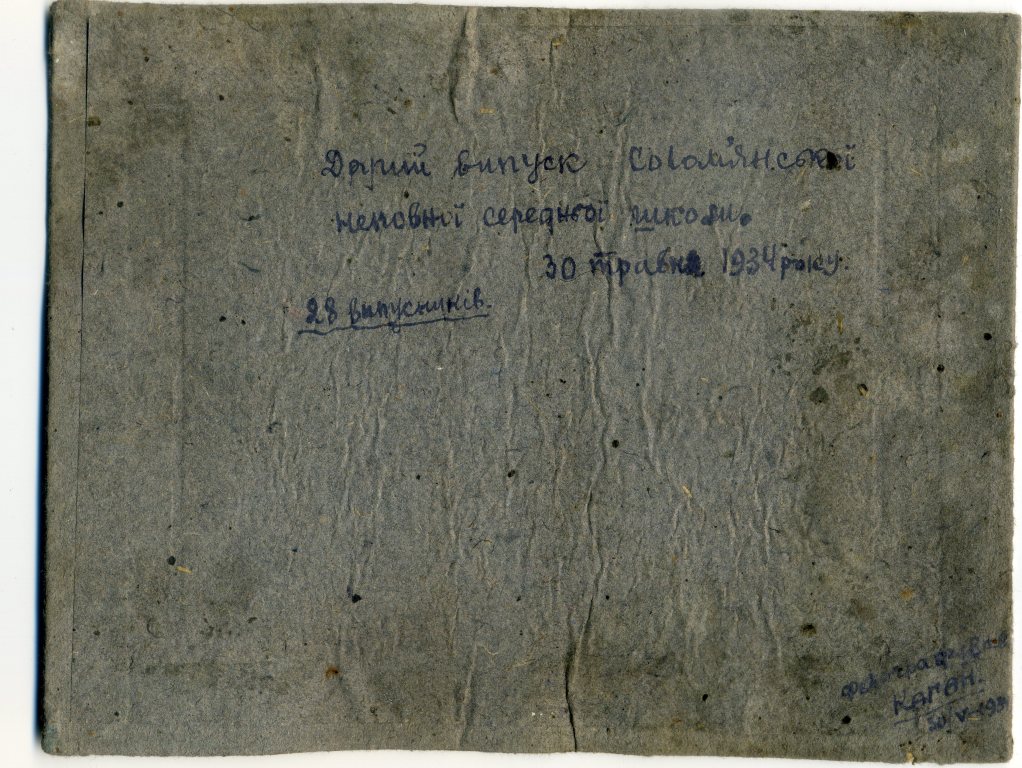 випуск Солом'янської
неповної середньої школи.
30 травня 1934 року.
28 випускників.
Фотографував
Каган.
30 V-193